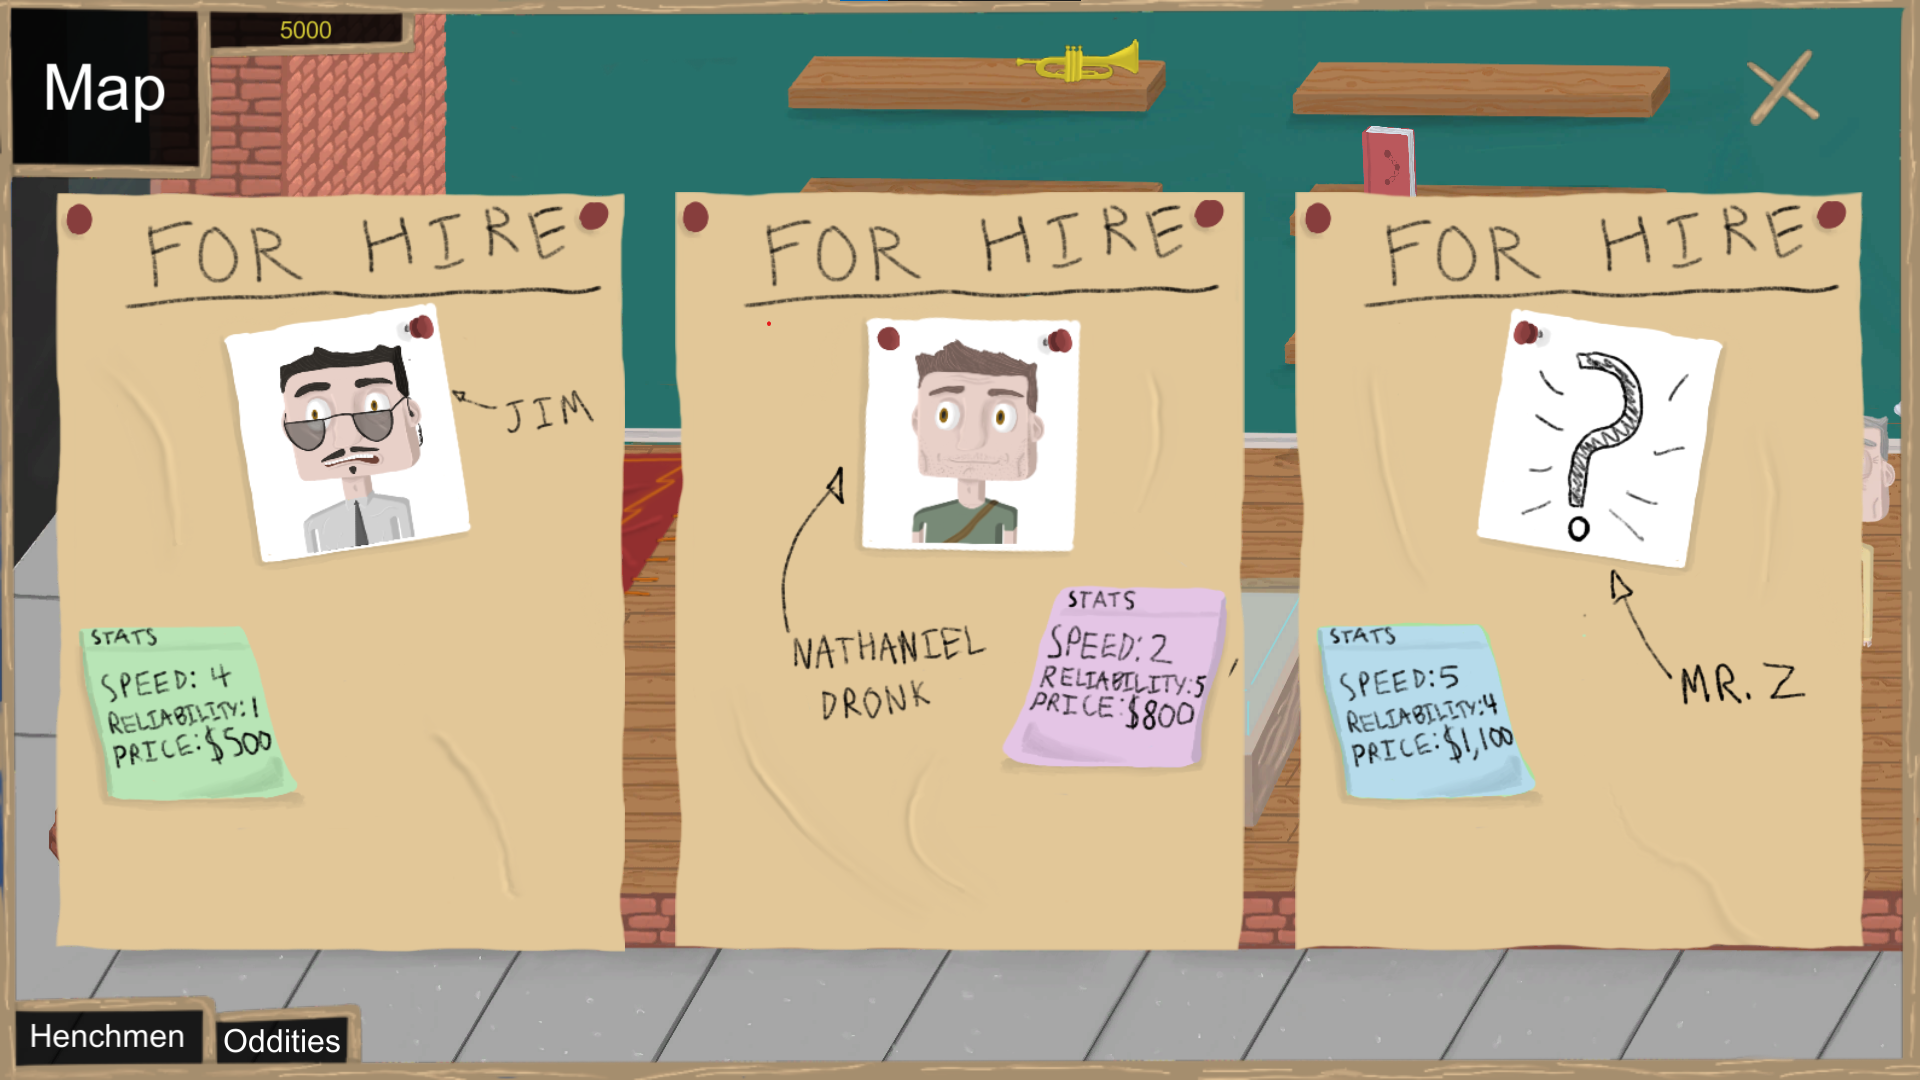 5000
Map
FOR HIRE
JIM
STATS
SPEED: 4
RELIABILITY:1
PRICE:$500
FOR HIRE
NATHANIEL
DRONK
STATS
SPEED:2
RELIABILITY:5
PRICE:$800
FOR HIRE
?
MR. Z
STATS
SPEED:5
RELIABILITY:4
PRICE:$1,100
Henchmen
Oddities